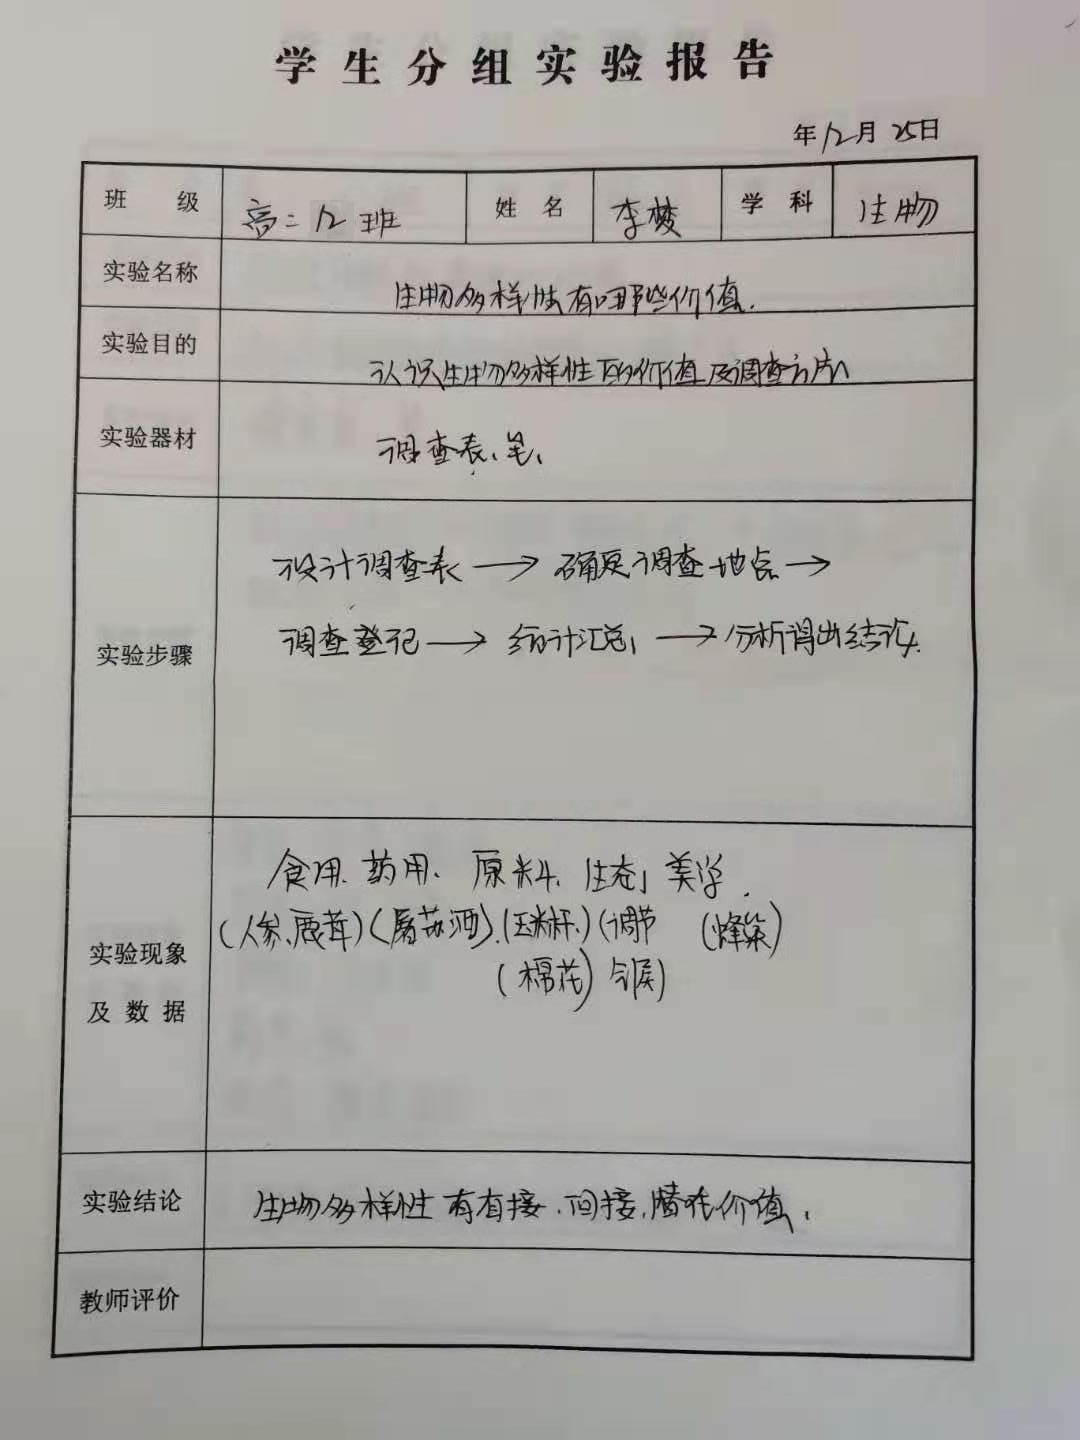 学生分组实验报告
年12月25日
班 级 高二12班 姓 名 李梭 学 科 生物
实验名称 生物多样性有哪些价值.
实验目的 认识生物多样性的价值及调查方法
实验器材 调查表、笔、
设计调查表 → 确定调查地点 →
实验步骤 调查登记 → 统计汇总 → 分析得出结论.
食用、药用、原料、生态、美学.
(人参、鹿茸)(屠苏酒).(玉米杆、)(调节 (蜂巢)
实验现象 (棉花) 气候)
及数据
实验结论 生物多样性有有接、间接、潜在价值、
教师评价